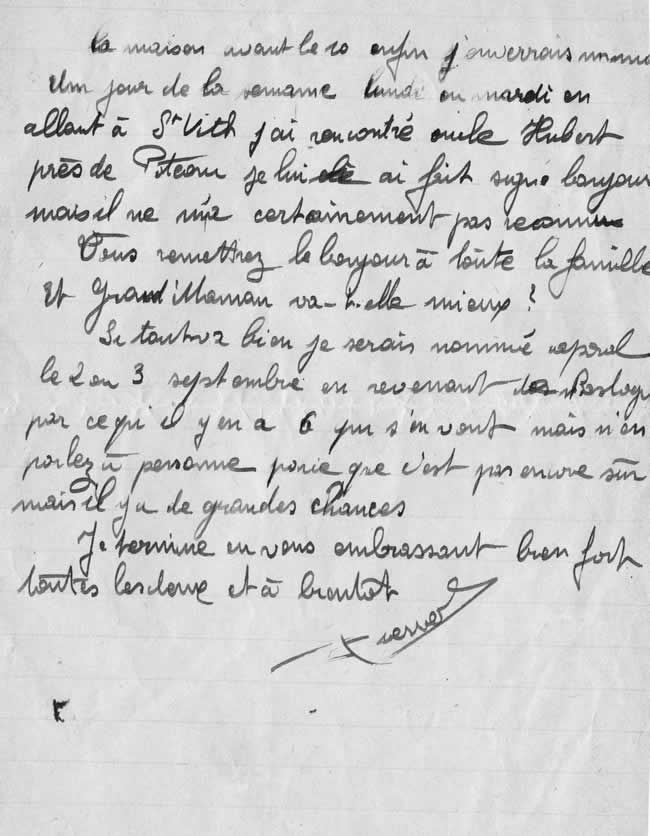 la maison avant le 10 enfin j'enverrais un mot
Um jour de la semaine lundi ou mardi en
allant à St Vith j'ai rencontré oncle Hubert
près de Piteau je lui ai fait signe bonjour
mais il ne m'a certainement pas reconnu
Vous remettrez le bonjour à toute la famille
Et Grand'Maman va-t-elle mieux ?
Si tout va bien je serais nommé caporal
le 2 ou 3 septembre en revenant de
par ce qu'il y en a 6 qui s'en vont mais n'en
parlez à personne parce que c'est pas encore sûr
mais il y a de grandes chances
Je termine en vous embrassant bien fort
toutes les deux et à bientot